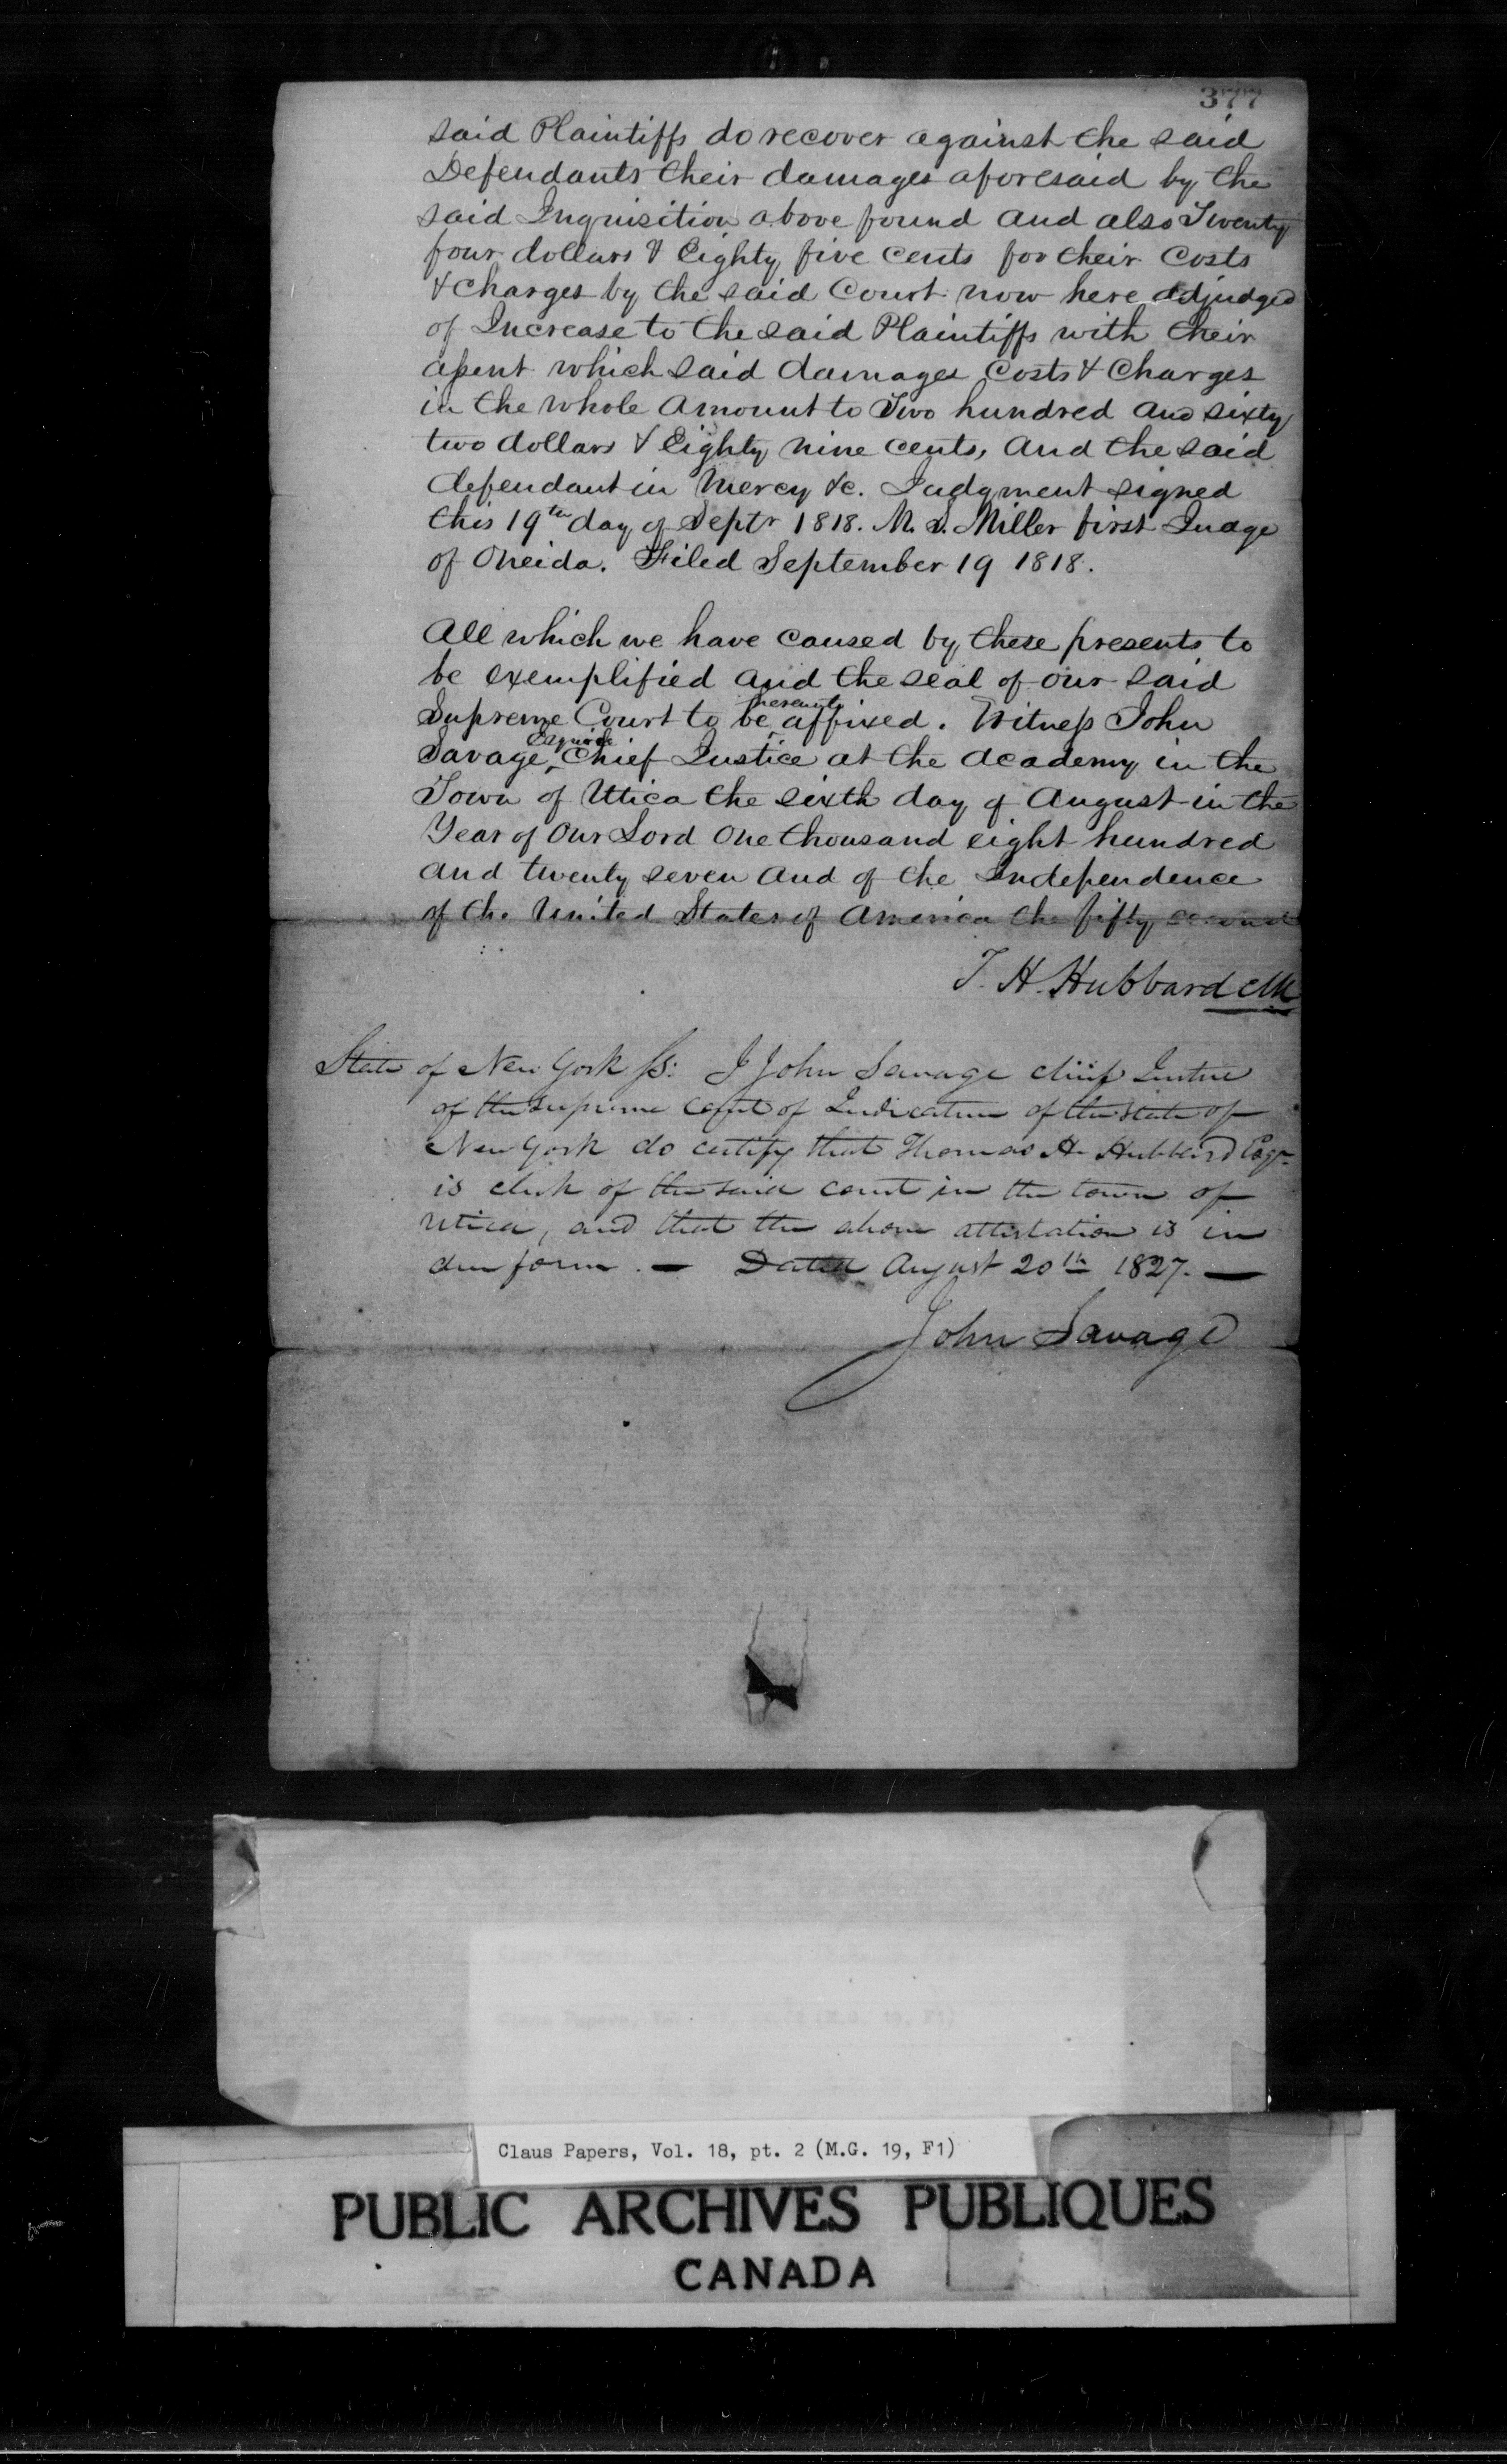 377
said Plaintiffs do recover against the said
Defendants their damages aforesaid by the
said Inquisition above found and also Twenty
four dollars & Eighty five cents for their Costs
& Charges by the said Court now here adjudged
of Increase to the said Plaintiffs with their
assent which said damages Costs & Charges
in the whole Amount to Two hundred and sixty
two dollars & Eighty nine cents, and the said
defendant in Mercy &c. Judgment signed
this 19th day of Septr 1818. M. S. Miller first Judge
of Oneida. Filed September 19 1818.
All which we have caused by these presents to
be exemplified and the seal of our said
presents
Supreme Court to be affixed. Witness John
Esquire
Savage, Chief Justice at the Academy in the
Town of Utica the sixth day of August in the
Year of Our Lord One thousand eight hundred
and twenty seven and of the Independence
of the United States of America the fifty second
T. H. Hubbard Clk
State of New York ss: I John Savage chief Justice
of the supreme court of Judicature of the state of
New York do certify that Thomas H. Hubbard Esqr
is clerk of the said court in the town of
Utica, and that the above attestation is in
due form. — Dated August 20th 1827. —
John Savage
Claus Papers, Vol. 18, pt. 2 (M.G. 19, F1)
PUBLIC ARCHIVES PUBLIQUES
CANADA